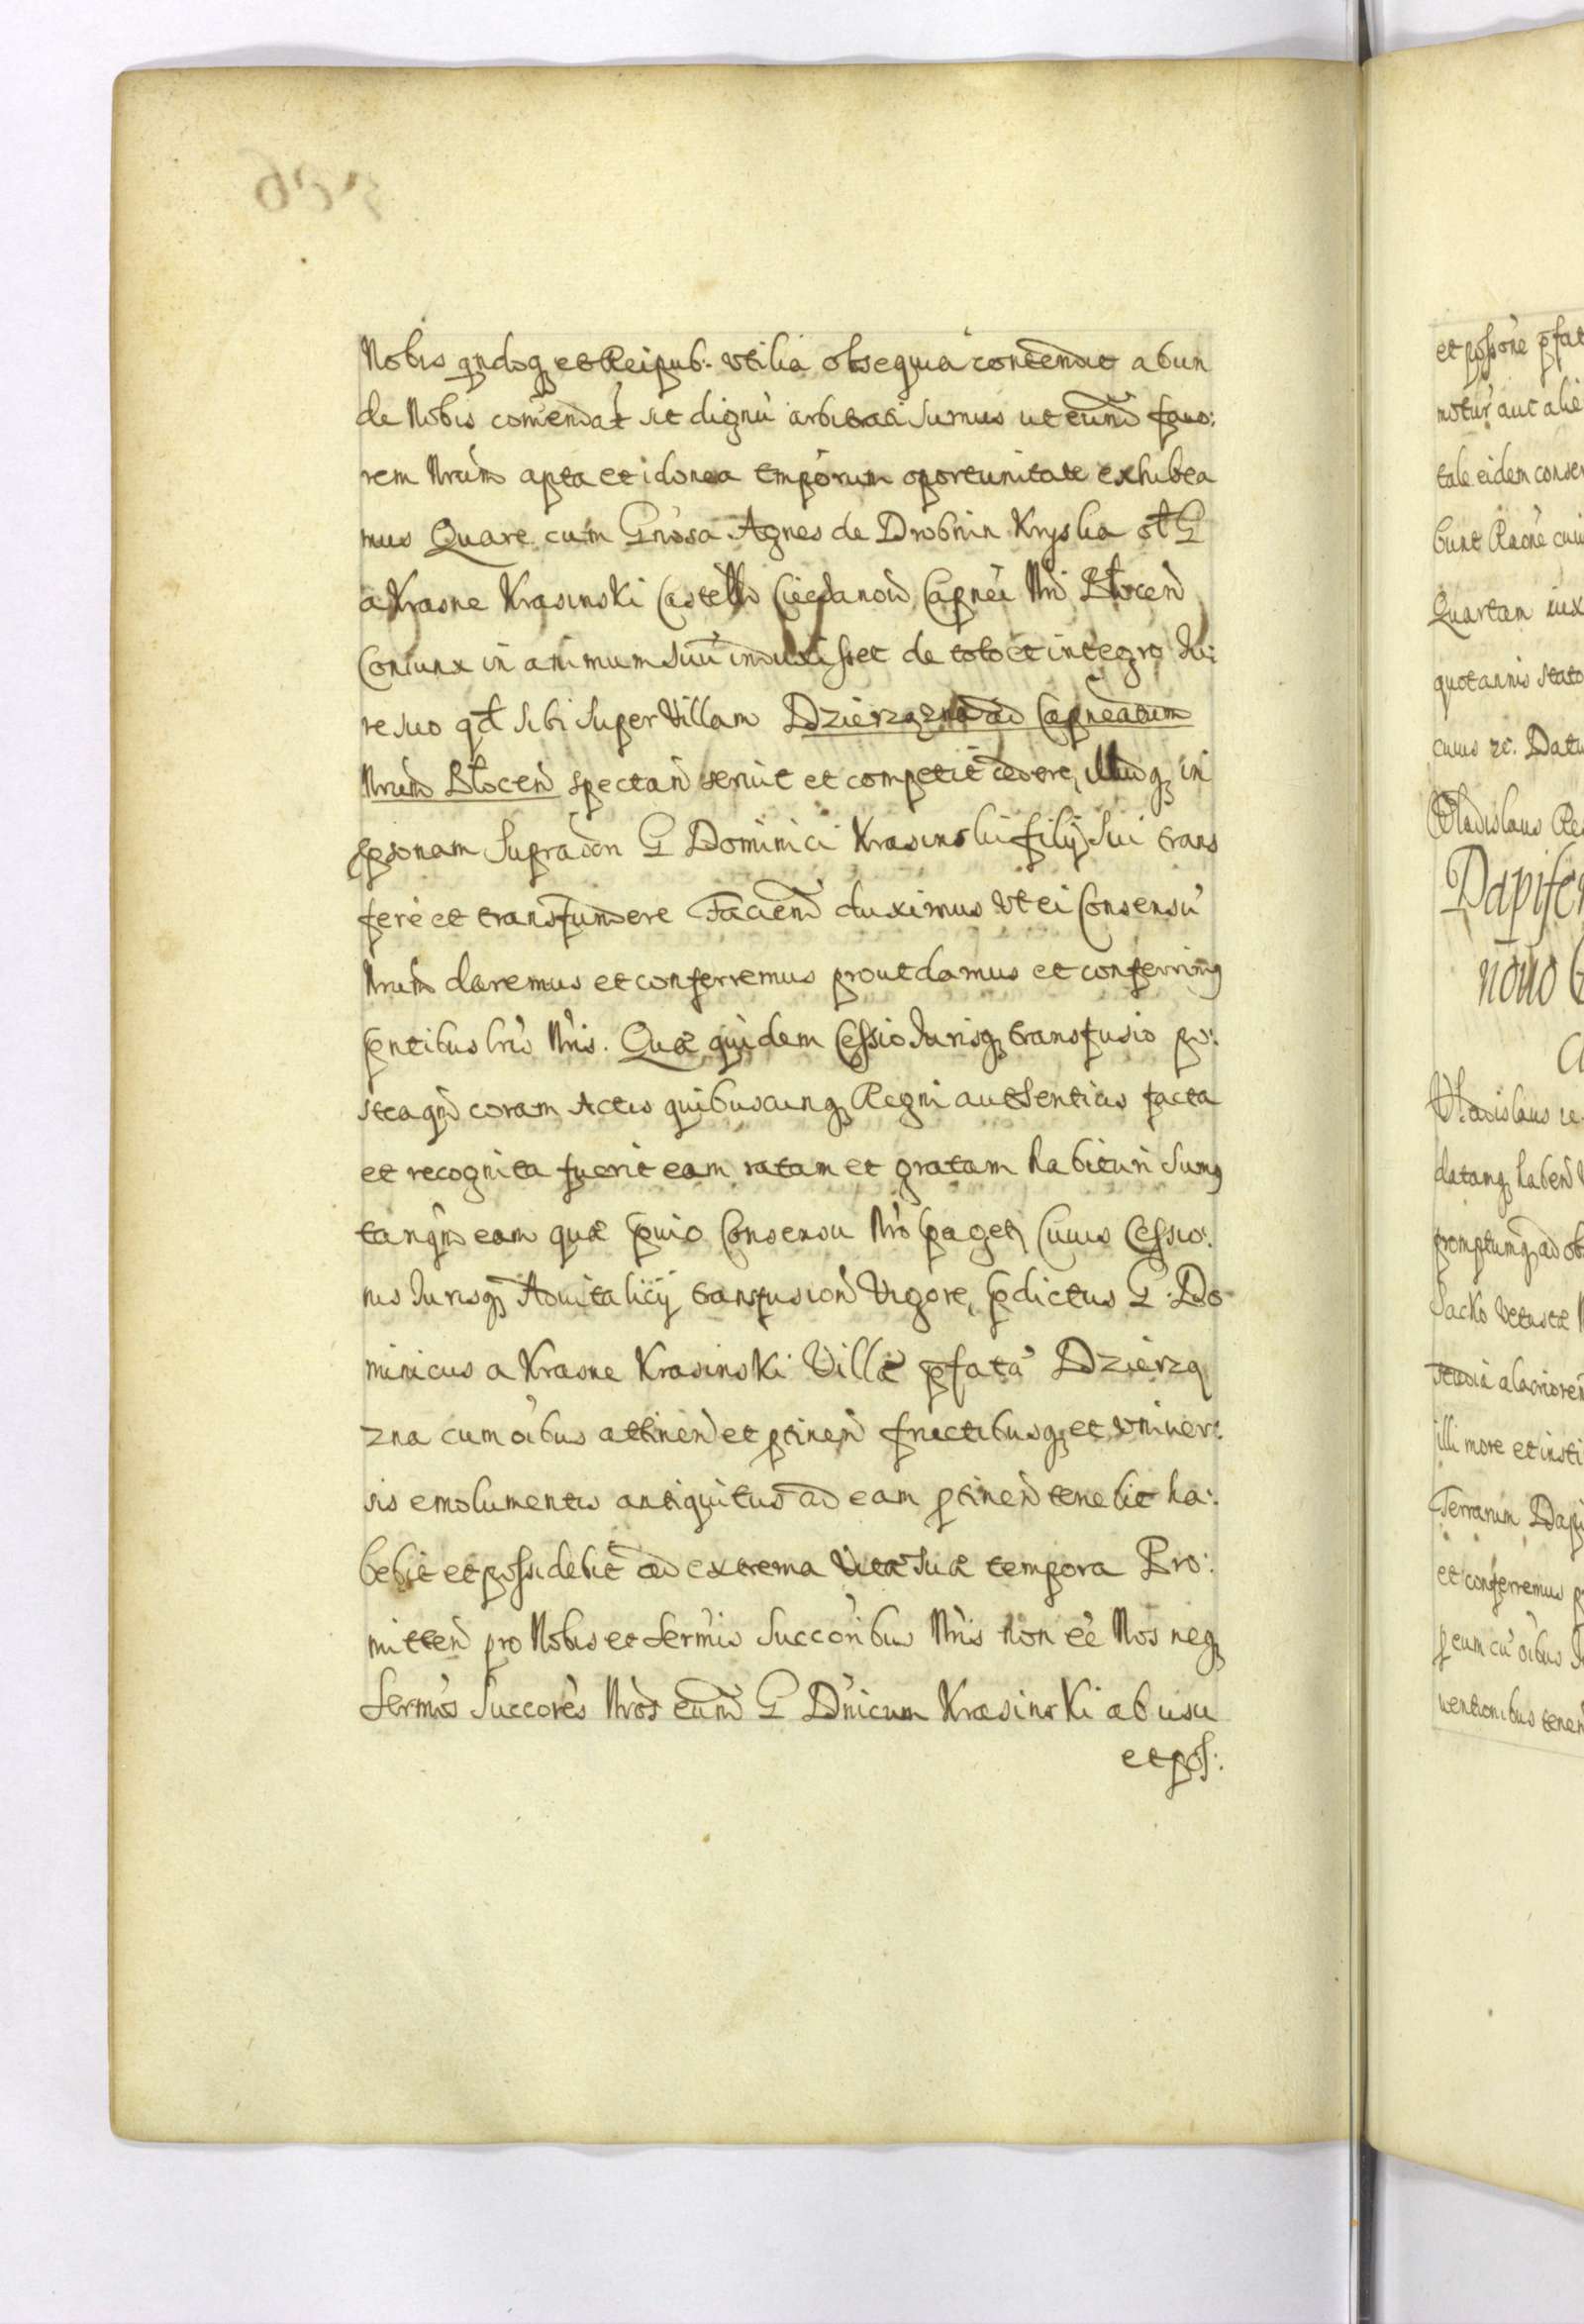 Nobis qndoq et Reipub: utilia obsequia contendat abun
de Nobis comendat sit dignu arbitrati sumus ut eund fauo:
rem Nrum apta et idonea temporum oportunitate exhibea
mus Quare cum Gnosa Agnes de Drobnin Kryska olt G
a Krasne Krasinski Castell Ciechanow Capnei Nri Plocen
Coniunx in animum suu induxisset de toto et integro Iu:
re suo qd sibi super Villam Dzierzązna ad Capneatum
Nrum Plocen spectan seruit et competit cedere, illudq in
psonam supradcn G Dominici Krasinski filij sui trans
fere et transfundere Faciend duximus ut ei Consensu
Nrum daremus et conferremus prout damus et conferrimus
pntibus lris Nris. Quæ quidem Cessio Iurisq transfusio po:
steaqm coram Actis quibuscunq Regni authenticis facta
et recognita fuerit eam ratam et gratam habituri sumus
tanqm eam quæ pvio Consensu Nro pagetr Cuius Cessio:
nis Iurisq Aduitalicij transfusion Vigore, pdictus G. Do
minicus a Krasne Krasinski Villæ pfata Dzierzą
zna cum oibus attinen et ptinen fructibusq et Vniver:
sis emolumentis antiquitus ad eam ptinen tenebit ha:
bebit et possidebit ad extrema Vitæ suæ tempora Pro:
mitten pro Nobis et Sermis Succoribus Nris Non ee Nos neq
Sermos Succores Nros eund G Dnicum Krasinski ab usu
et pos:
et possone pfat
tale eidem conser
Quartam iux
quotannis stato
cuius &c. Datu
Vladislaus Re
Dapifer
nouo
Vladislaus
dataq haben
promptumq ad ob
illi more et insti
Terrarum Dapi
et conferremus p
p eum cu oibus
uentionibus tenen